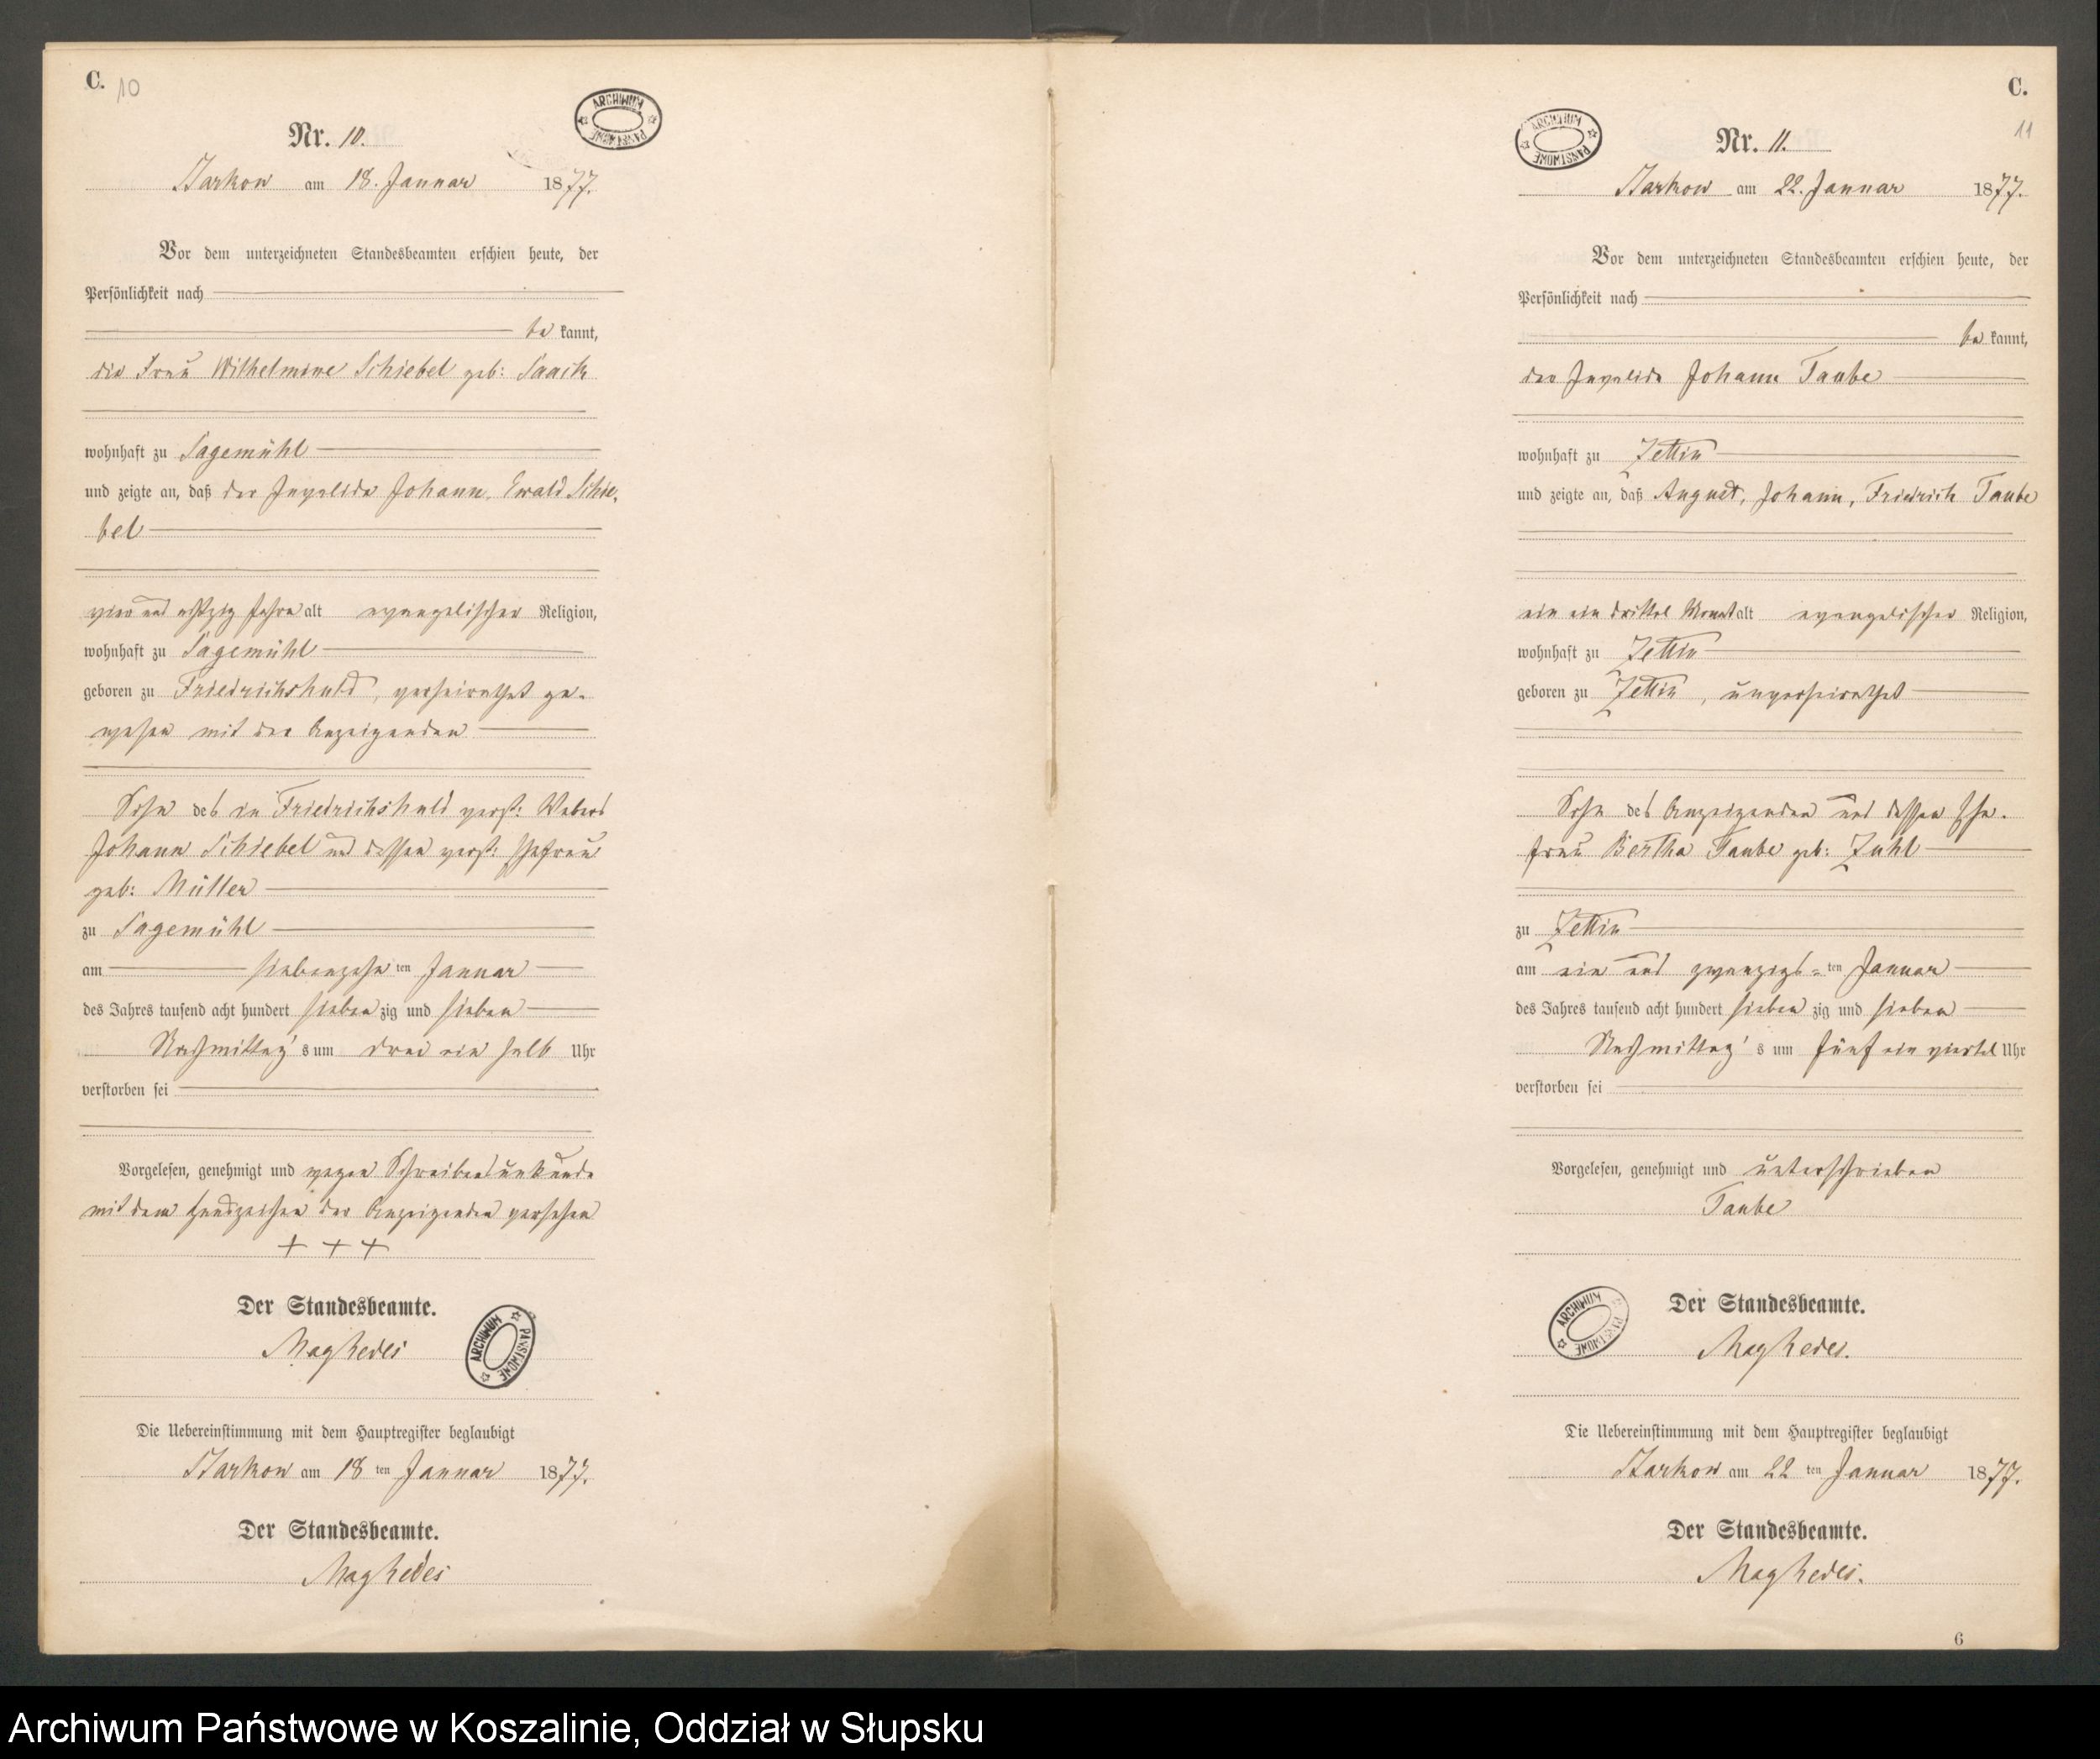 C. 10
ARCHIWUM PAŃSTWOWE
Nr. 10.
Starkow am 18. Januar 1877.
Vor dem unterzeichneten Standesbeamten erschien heute, der
Persönlichkeit nach
be kannt,
die Frau Wilhelmine Schiebel geb: Saack
wohnhaft zu Sagemühl
und zeigte an, daß der Invalide Johann, Ewald Schie-
bel
vier und achtzig Jahre alt evangelischer Religion,
wohnhaft zu Sagemühl
geboren zu Friedrichshuld, verheirathet ge-
wesen mit der Anzeigenden
Sohn des in Friedrichshuld verst: Webers
Johann Schiebel und dessen verst: Ehefrau
geb: Müller
zu Sagemühl
am siebenzehn ten Januar
des Jahres tausend acht hundert sieben zig und sieben
Nachmittag's um drei ein halb Uhr
verstorben sei
Vorgelesen, genehmigt und wegen Schreibensunkunde
mit dem Handzeichen der Anzeigenden versehen
+ + +
Der Standesbeamte.
ARCHIWUM PAŃSTWOWE
Die Uebereinstimmung mit dem Hauptregister beglaubigt
Starkow am 18 ten Januar 1877.
Der Standesbeamte.
C.
11
ARCHIWUM PAŃSTWOWE
Nr. 11.
Starkow am 22. Januar 1877.
Vor dem unterzeichneten Standesbeamten erschien heute, der
Persönlichkeit nach
be kannt,
der Invalide Johann Taube
wohnhaft zu Zettin
und zeigte an, daß August, Johann, Friedrich Taube
ein ein drittel Monat alt evangelischer Religion,
wohnhaft zu Zettin
geboren zu Zettin, unverheirathet
Sohn des Anzeigenden und dessen Ehe-
frau Bertha Taube geb: Zuhl
zu Zettin
am ein und zwanzigs-ten Januar
des Jahres tausend acht hundert sieben zig und sieben
Nachmittag's um fünf ein viertel Uhr
verstorben sei
Vorgelesen, genehmigt und unterschrieben
Taube
Der Standesbeamte.
ARCHIWUM PAŃSTWOWE
Die Uebereinstimmung mit dem Hauptregister beglaubigt
Starkow am 22 ten Januar 1877.
Der Standesbeamte.
6
Archiwum Państwowe w Koszalinie, Oddział w Słupsku